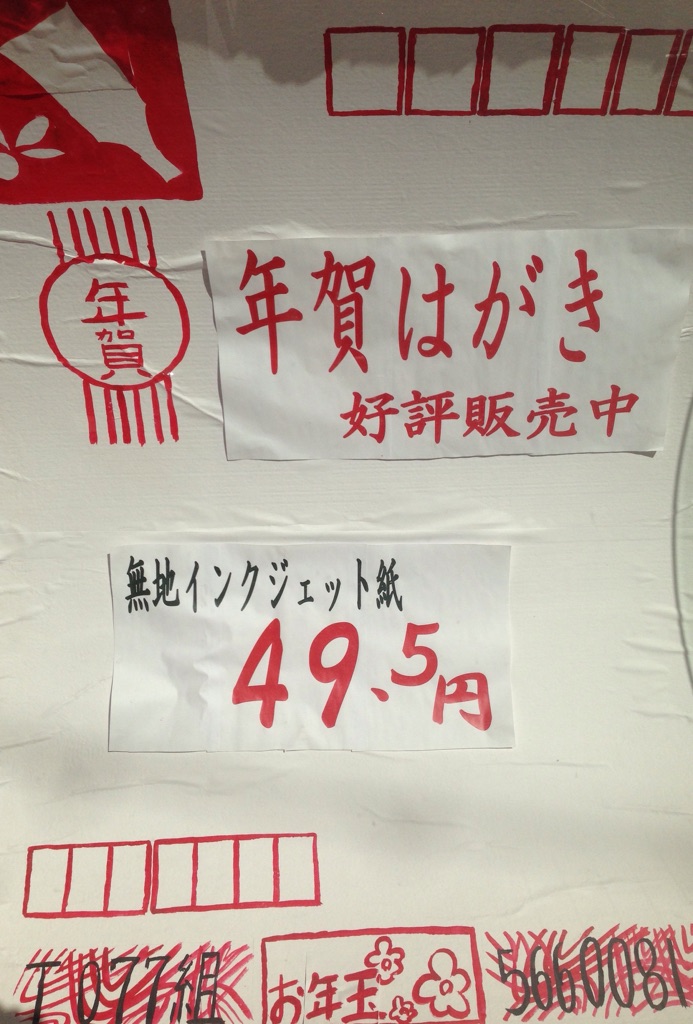 年賀
年賀はがき
好評販売中
無地インクジェット紙
49.5円
お年玉
T077組
5660081